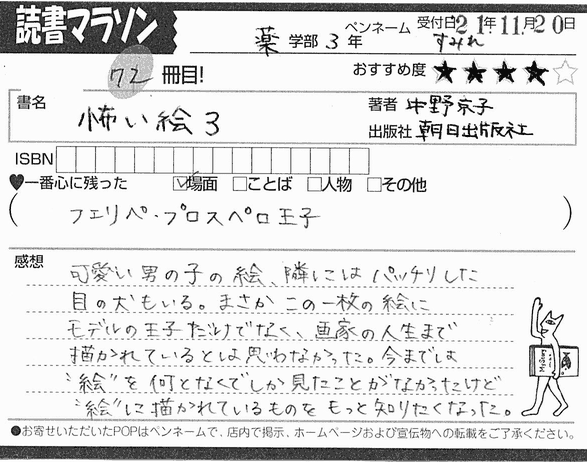 読書マラソン
ペンネーム 受付日21年11月20日
薬 学部 3 年 すみれ
72 冊目! おすすめ度 ★★★★☆
書名 怖い絵3
著者 中野京子
出版社 朝日出版社
ISBN
♥一番心に残った ☑場面 □ことば □人物 □その他
(フェリペ・プロスペロ王子)
感想
可愛い男の子の絵、隣にはパッチリした
目の犬もいる。まさかこの一枚の絵に
モデルの王子だけでなく、画家の人生まで
描かれているとは思わなかった。今までは
"絵"を何となくでしか見たことがなかったけど
"絵"に描かれているものをもっと知りたくなった。
●お寄せいただいたPOPはペンネームで、店内で掲示、ホームページおよび宣伝物への転載をご了承ください。